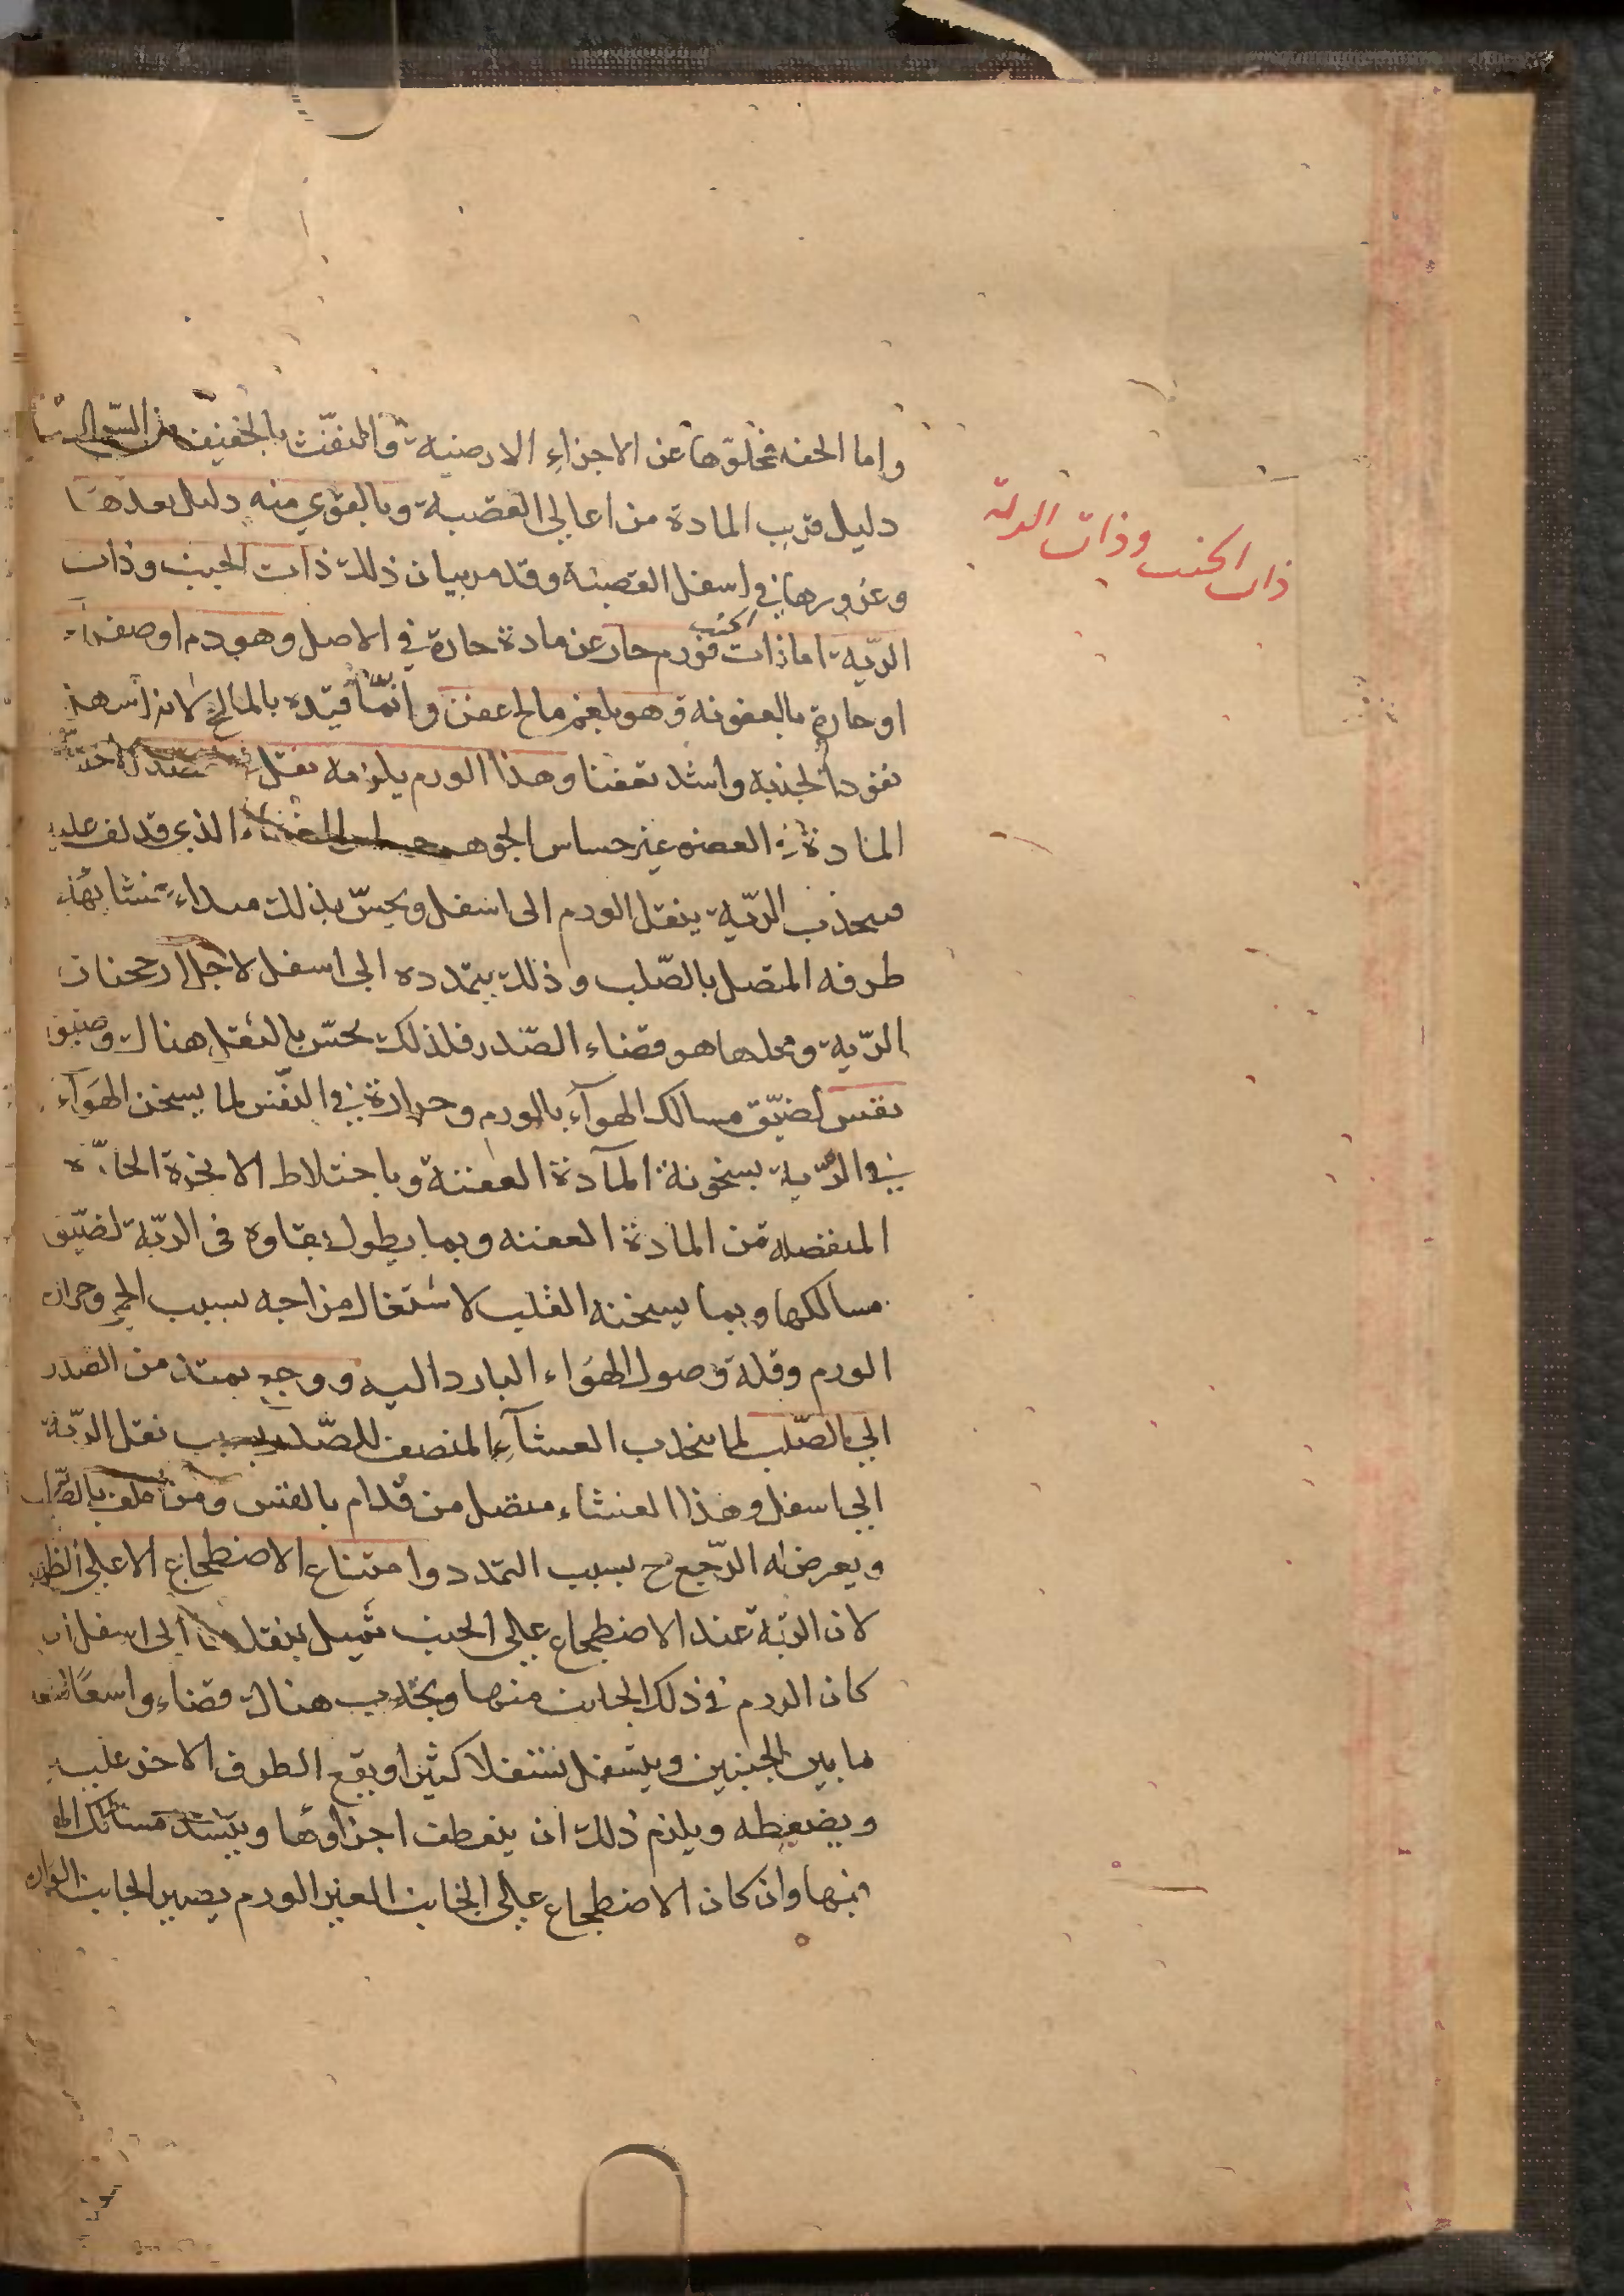 واما الخفه فخلوّها عن الاجزاء الارضية والمنفّث بالخفيف من السعال
دليل قرب المادة من اعالى القصبة وبالقوي منه دليل بعدها
وغورها في اسفل القصبة وقد مر بيان ذلك ذات الجنب وذات
الرّية اما ذات فورم حار عن مادة حارة في الاصل وهو دم او صفراء
او حارة بالعفونه وهو بلغم مالح عفن وانّما قيّده بالمالح لانه اسهل
نفوذا لجذبه واشد تعفنا وهذا الورم يلزمه ثقل
المادة في العضو غير حساس الجوهر الغشاء الذي قد لف عليه
فبجذب الرّية بثقل الورم الى اسفل ويحسّ بذلك
طرفه المتصل بالصّلب وذلك بتمدده الى اسفل لاجل ارجحنان
الرّية ومحلها هو فضاء الصّدر فلذلك يحسّ بالثقل هناك وضيق
نفس لضيّق مسالك الهوآء بالورم وحرارة في النفس لما يسخن الهوآء
في الرّية بسخونة المآدة العفنة وباختلاط الابخرة الحارّة
المنفصلة من المادة العفنه وبما يطول بقاوه فى الريّة لضيّق
مسالكها وبما يسخنه القلب لاشتغال مزاجه بسبب الحمى وحرارة
الورم وقلة وصول الهوَاء البارد اليه ووجع يمتد من الصدر
الى الصّلب لما ينجذب الغشآء المنصف للصّدر بسبب ثقل الريّة
الى اسفل وهذا الغشاء متصل من قدام بالقس ومن خلف بالصّلب
ويعرض له الوجع ح بسبب التمدد وامتناع الاضطجاع الا على الظهر
لان الريّة عند الاضطجاع على الجنب تميل بثقلها الى اسفل ان
كان الورم في ذلك الجانب منها ويجذب هناك فضاء واسعًا
ما بين الجنبين ويتسفل تسفلا كثيرا ويقع الطرف الاخر عليه
ويضغطه ويلزم ذلك ان ينعطف اجزاوها وينسد مسالك الهو
منها وان كان الاضطجاع على الجانب الغير الورم يصير الجانب الوارم
ذات الجنب وذات الرية
الجنب